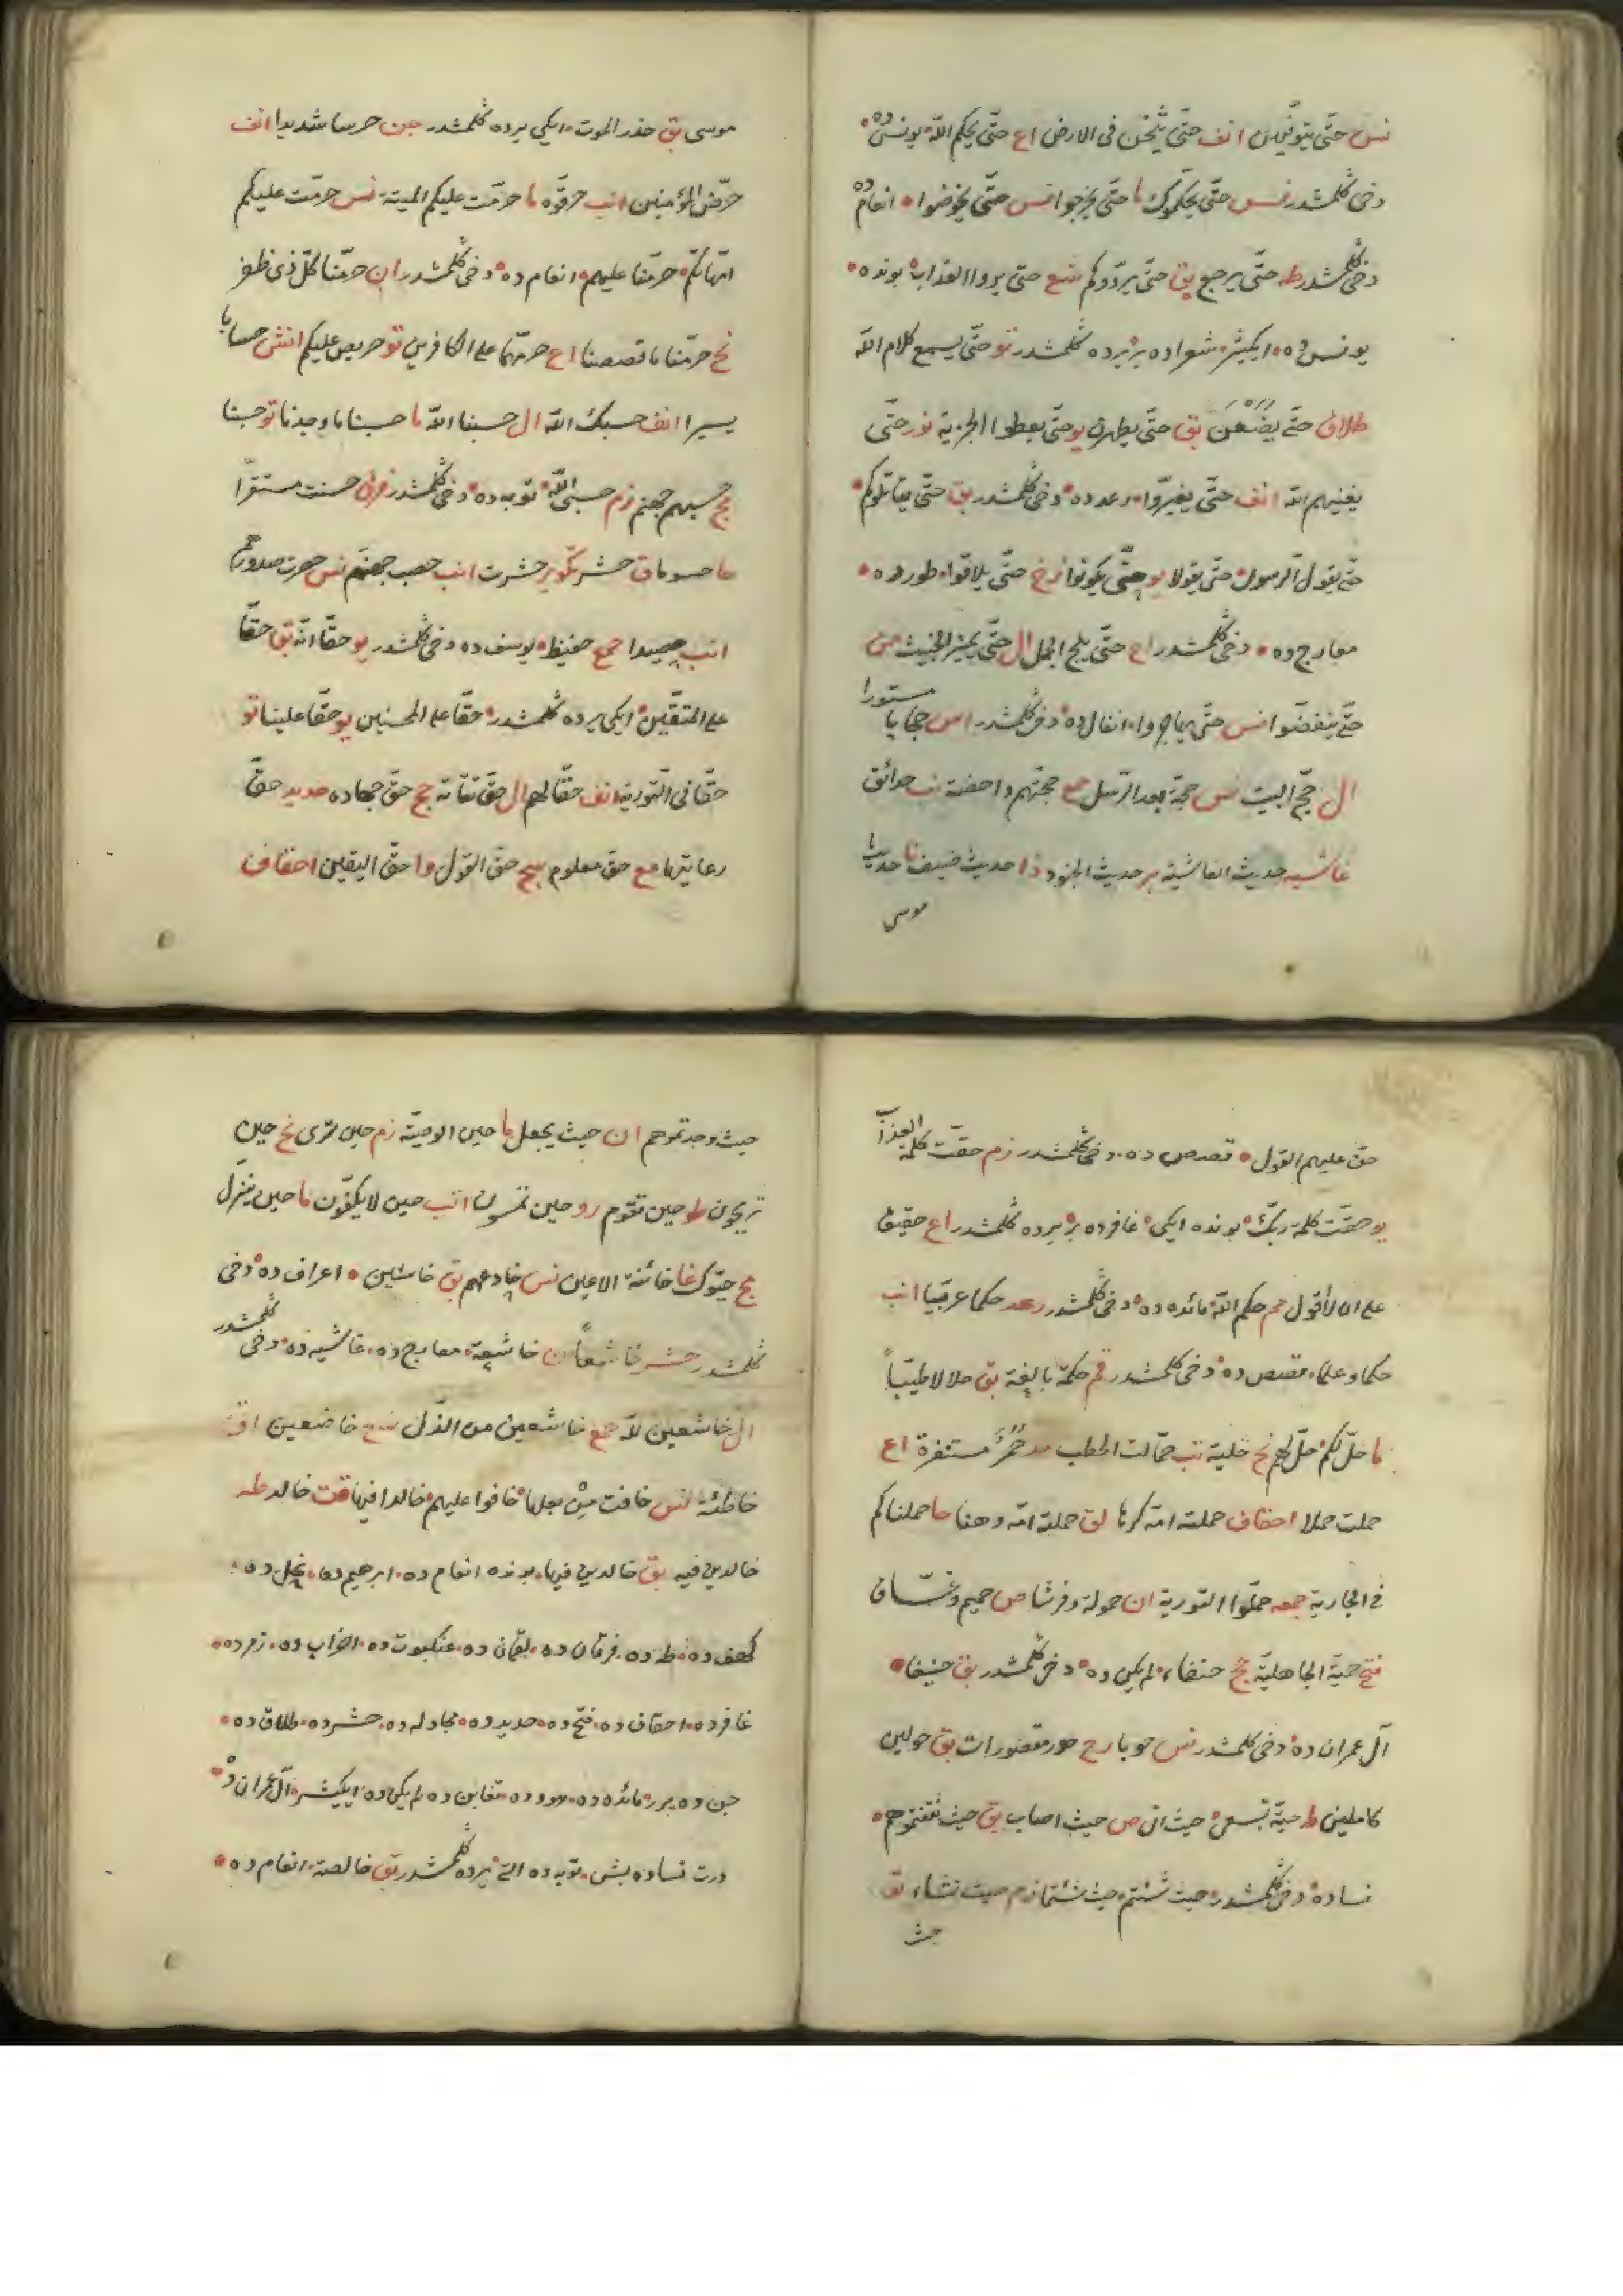 نس حتّى يتوفّيهن انف حتّى يثخن فى الارض اع حتّى يحكم اللّه يونس ده
دخى گلمشدر نس حتّى يحكّموك ما حتّى يخرجوا نس حتّى يخوضوا انعام ده
دخى گلمشدر طه حتّى يرجع بق حتّى يردّوكم شع حتّى يروا العذاب بونده
يونس ده ايكيشر شعراده برر يرده گلمشدر تو حتّى يسمع كلام اللّه
طلاق حتّى يضعن بق حتّى يطهرن يو حتّى يعطوا الجزية نور حتّى
يغنيهم اللّه انف حتّى يغيّروا رعد ده دخى گلمشدر بق حتّى يقاتلوكم
حتّى يقول الرسول حتّى يقولا يو حتّى يكونوا زخ حتّى يلاقوا طور ده
معارج ده دخى گلمشدر اع حتّى يلج الجمل ال حتّى يميز الخبيث من
حتّى ينفضّوا نس حتّى يهاجروا انفال ده دخى گلمشدر اس حجابا مستورا
ال حجّ البيت نس حجّة بعد الرّسل حجّتهم داحضة نب حدائق
غاشيه حديث الغاشية بر حديث الجنود ذا حديث ضيف نا حديثا
موسى
موسى بق حذر الموت ايكى يرده گلمشدر جن حرسا شديدا انف
حرّض المؤمنين انب حرقّوه ما حرّمت عليكم الميتة نس حرّمت عليكم
امّهاتكم حرّمنا عليهم انعام ده دخى گلمشدر ان حرّمنا كلّ ذى ظفر
نح حرّمنا ما قصصنا اع حرّمهما على الكافرين تو حريص عليكم انش حسابا
يسيرا انف حسبك اللّه ال حسبنا اللّه ما حسبنا ما وجدنا تو حسبنا
مج حسبهم جهنم زم حسبى اللّه توبه ده دخى گلمشدر فرق حسنت مستقرّا
حا حسوما ق حشر تكوير حشرت انب حصب جهنم نس حصرت صدورهم
انب حصيدا جمع حفيظ يوسف ده دخى گلمشدر يو حقّا انّه بق حقّا
على المتقين ايكى يرده گلمشدر حقّا على المحسنين يو حقّا علينا تو
حقّا فى التورية انف حقّا لهم ال حقّ تقاته حج حقّ جهاده حديد حقّ
رعايتها مع حقّ معلوم سج حقّ القول وا حقّ اليقين احقاف
حقّ عليهم القول قصص ده دخى گلمشدر زم حقّت كلمة العذاب
يو حقّت كلمة ربّك بونده ايكى غافرده برر يرده گلمشدر اع حقيق
على ان لا أقول مم حكم اللّه مائده ده دخى گلمشدر رعد حكما عربيّا انب
حكما وعلما قصص ده دخى گلمشدر قم حكمة بالغة بق حلالا طيّبا
ما حلّ لكم حلّ لهم نح حلية تب حمّالت الحطب مد حمر مستنفرة اع
حملت حملا احقاف حملته امّه كرها لق حملته امّه وهنا حا حملناكم
فى الجارية جمعه حمّلوا التورية ان حمولة وفرشا ص حميم وغسّاق
فتح حميّة الجاهليّة حج حنفاء لم يكن ده دخى گلمشدر بق حنيفا
آل عمران ده دخى گلمشدر نس حوبا رح حور مقصورات بق حولين
كاملين ط حيّة تسعى حيث اتى ص حيث اصاب بق حيث ثقفتموهم
نساده دخى گلمشدر حيث شئتم حيث شئتما زم حيث نشاء تو
حيث
حيث وجدتموهم ان حيث يجعل ما حين الوصيّة زم حين ترى نح حين
تريحون طو حين تقوم رو حين تمسون انب حين لا يكفّون ما حين ينزّل
مج حيّوك غا خائنة الاعين نس خادعهم بق خاسئين اعراف ده دخى
گلمشدر حشر خاشعا ن خاشعة معارج ده غاشيه ده دخى گلمشدر
ال خاشعين للّه جمع خاشعين من الذّل شع خاضعين اق
خاطئة نس خافت من بعلها خافوا عليهم خالدا فيها قت خالد طه
خالدين فيه بق خالدين فيها بونده انعام ده ابرهيم ده نحل ده
كهف ده طه ده فرقان ده لقمان ده عنكبوت ده احزاب ده زمر ده
غافر ده احقاف ده فتح ده حديد ده مجادله ده حشر ده طلاق ده
جن ده برر مائده ده هود ده تغابن ده لم يكن ده ايكيشر آل عمران ده
درت نساده بش توبه ده التى يرده گلمشدر بق خالصة انعام ده